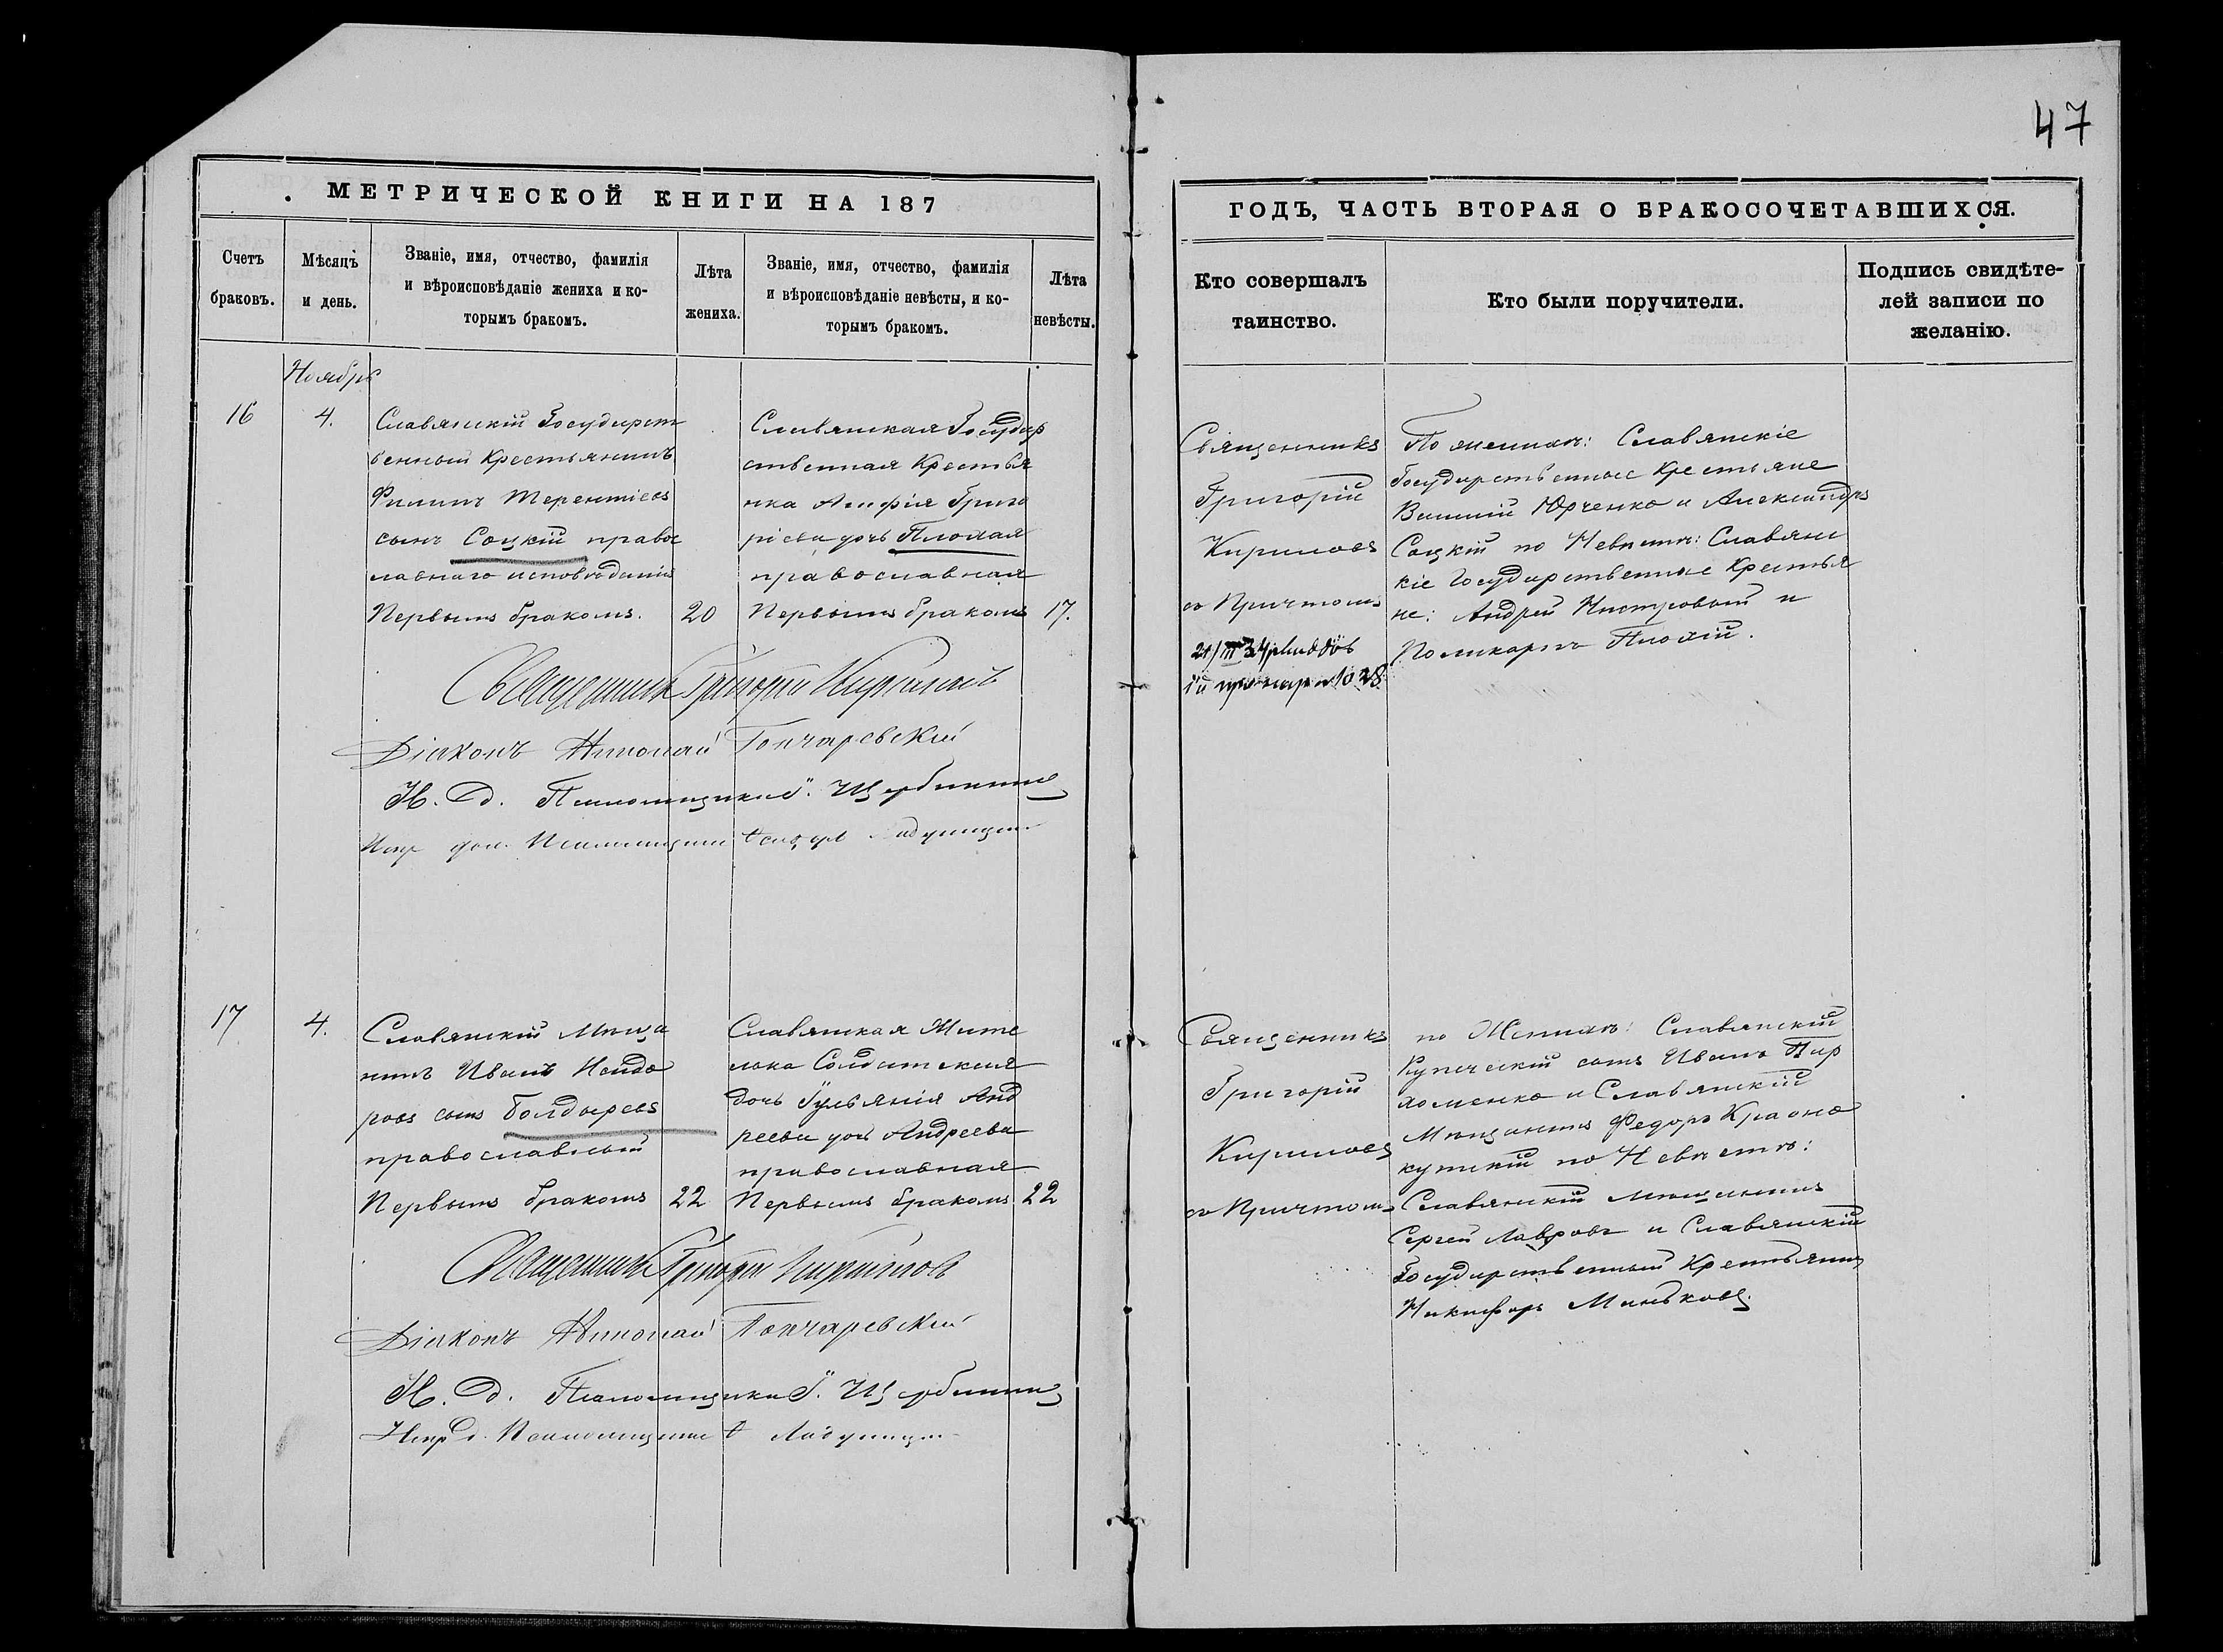 47
МЕТРИЧЕСКОЙ КНИГИ НА 187
ГОДЪ, ЧАСТЬ ВТОРАЯ О БРАКОСОЧЕТАВШИХСЯ.
Счетъ браковъ.
Мѣсяцъ и день.
Званіе, имя, отчество, фамилія
и вѣроисповѣданіе жениха и ко-
торымъ бракомъ.
Лѣта жениха.
Званіе, имя, отчество, фамилія
и вѣроисповѣданіе невѣсты, и ко-
торымъ бракомъ.
Лѣта невѣсты.
Кто совершалъ
таинство.
Кто были поручители.
Подпись свидѣте-
лей записи по
желанію.
Ноябрь
16
4.
Славянскій Государст
венный Крестьянинъ
Филипъ Терентіевъ
сынъ Соцкій правос
лавнаго исповѣданія
Первымъ бракомъ.
20
Славянская Государ
ственная Крестья
нка Агафія Григо
ріева дочь Плохая
православная
Первымъ бракомъ
17.
Священникъ
Григорій
Кириловъ
съ Причтомъ
По женихѣ: Славянскіе
Государственные Крестьяне
Василій Юрченко и Александръ
Соцкій по Невѣстѣ: Славянс
кіе Государственные Крестья
не: Андрей и
Поликарпъ Плохій.
Священникъ Григорій Кириловъ
Діаконъ Николай Гончаревскій
И. Д. Псаломщика І. Щербининъ
17
4.
Славянскій Мѣща
нинъ Иванъ Исидо
ровъ сынъ Болдыревъ
православный
Первымъ бракомъ
22
Славянская Жите
лька Солдатская
дочь Іульянія Анд
реева дочь Андреева
православная
Первымъ бракомъ
22
Священникъ
Григорій
Кириловъ
съ Причтомъ
по Женихѣ: Славянскій
Купеческій сынъ Иванъ Пар
хоменко и Славянскій
Мѣщанинъ Федоръ Красно
кутскій по Невѣстѣ:
Славянскій мѣщанинъ
Сергей Лавровъ и Славянскій
Государственный Крестьянинъ
Никифоръ Миньковъ.
Священникъ Григорій Кириловъ
Діаконъ Николай Гончаревскій
И. Д. Псаломщика І. Щербининъ